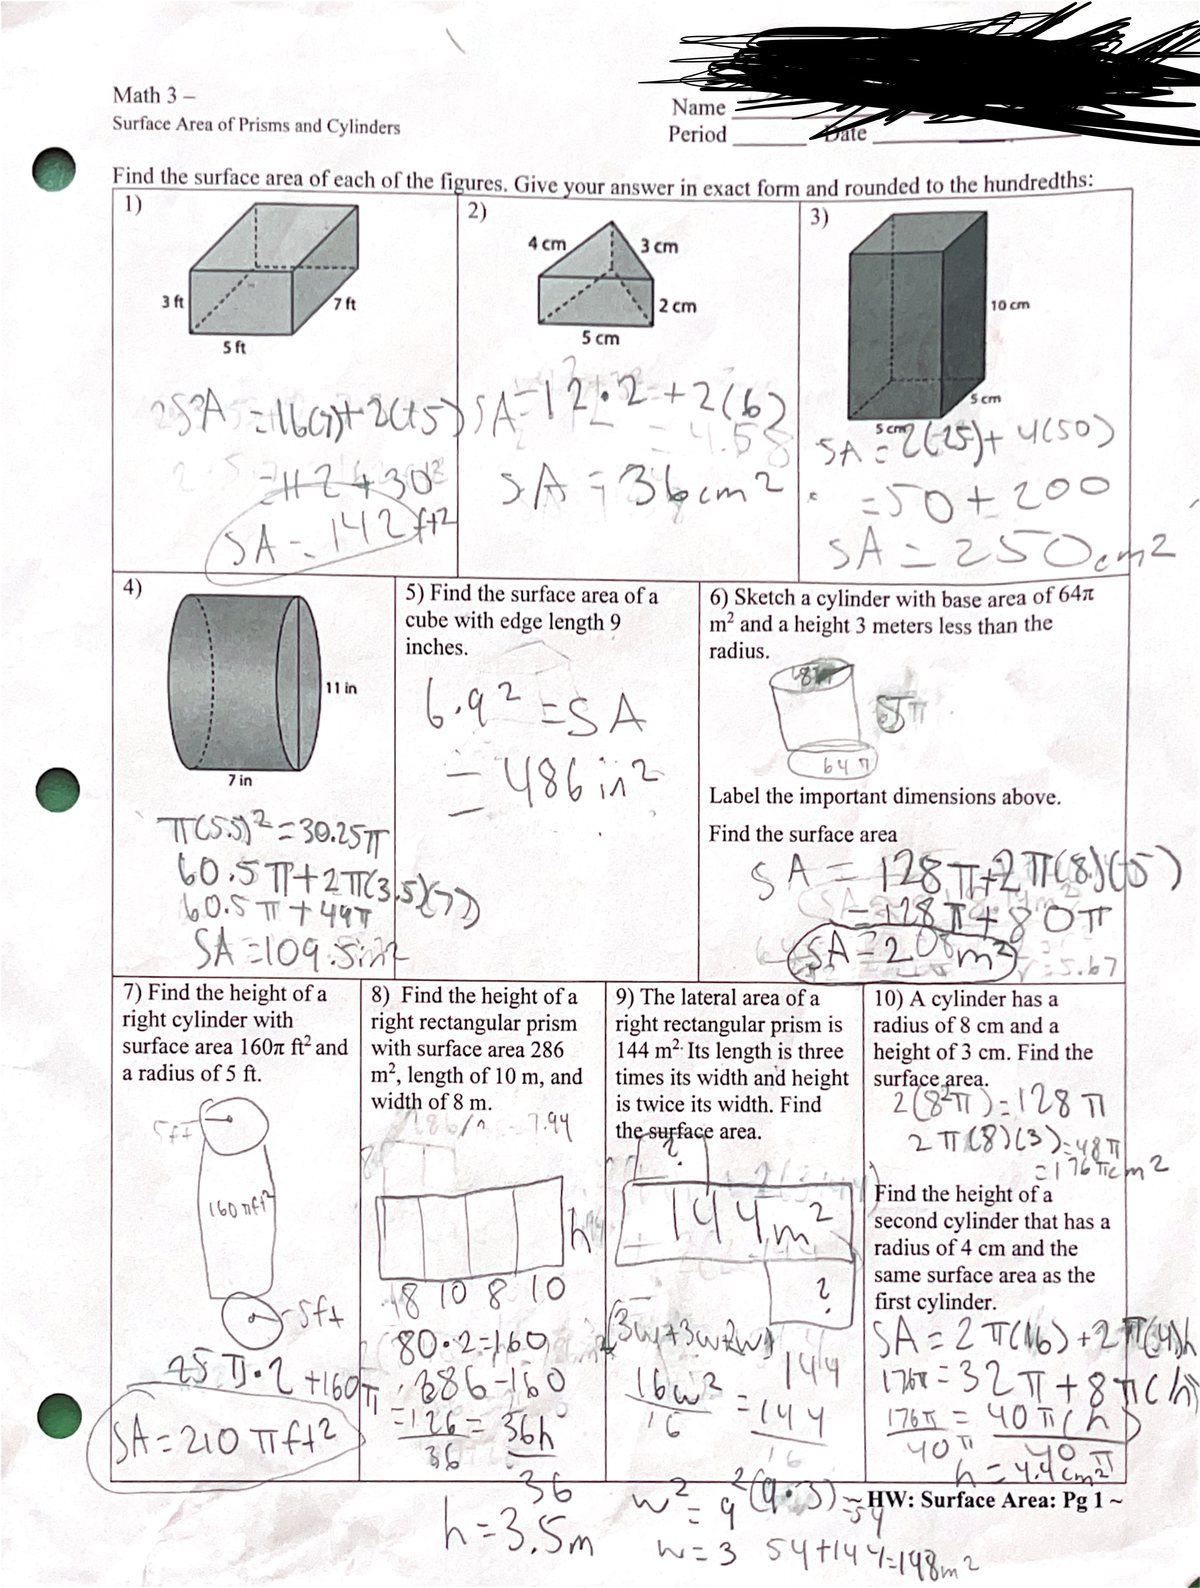 Math 3 –
Surface Area of Prisms and Cylinders
Name
Period Date
Find the surface area of each of the figures. Give your answer in exact form and rounded to the hundredths:
1)
3 ft
7 ft
5 ft
SA = 16(7)+2(15)
= 112 + 30
SA = 142 ft2
2)
4 cm
3 cm
2 cm
5 cm
SA = 12 · 2 + 2(6)
SA = 36 cm2
3)
10 cm
5 cm
5 cm
SA = 2(25) + 4(50)
= 50 + 200
SA = 250 cm2
4)
11 in
7 in
π(5.5)2 = 30.25π
60.5π + 2π(3.5)(7)
60.5π + 49π
SA = 109.5in2
5) Find the surface area of a
cube with edge length 9
inches.
6·9² = SA
= 486 in²
6) Sketch a cylinder with base area of 64π
m² and a height 3 meters less than the
radius.
64π
Label the important dimensions above.
Find the surface area
SA = 128π+2π(8)(5)
= 128π + 80π
SA = 208m2
7) Find the height of a
right cylinder with
surface area 160π ft² and
a radius of 5 ft.
5ft
160πft²
5ft
25π·2 +160π
SA = 210πft2
8) Find the height of a
right rectangular prism
with surface area 286
m², length of 10 m, and
width of 8 m.
7.94
h
8 10 8 10
80·2=160
286-160
=126 = 36h
36 36
h = 3.5m
9) The lateral area of a
right rectangular prism is
144 m². Its length is three
times its width and height
is twice its width. Find
the surface area.
?
144m²
?
144
16w² = 144
16 16
w² = 9 2(9·3) = 54
w = 3 54+144=198m2
10) A cylinder has a
radius of 8 cm and a
height of 3 cm. Find the
surface area.
2(8²π) = 128π
2π(8)(3)=48π
=176πcm2
Find the height of a
second cylinder that has a
radius of 4 cm and the
same surface area as the
first cylinder.
SA = 2π(16)+2π(4)h
176π = 32π + 8π(h)
176π = 40π(h)
40π 40π
h = 4.4cm2
HW: Surface Area: Pg 1 ~